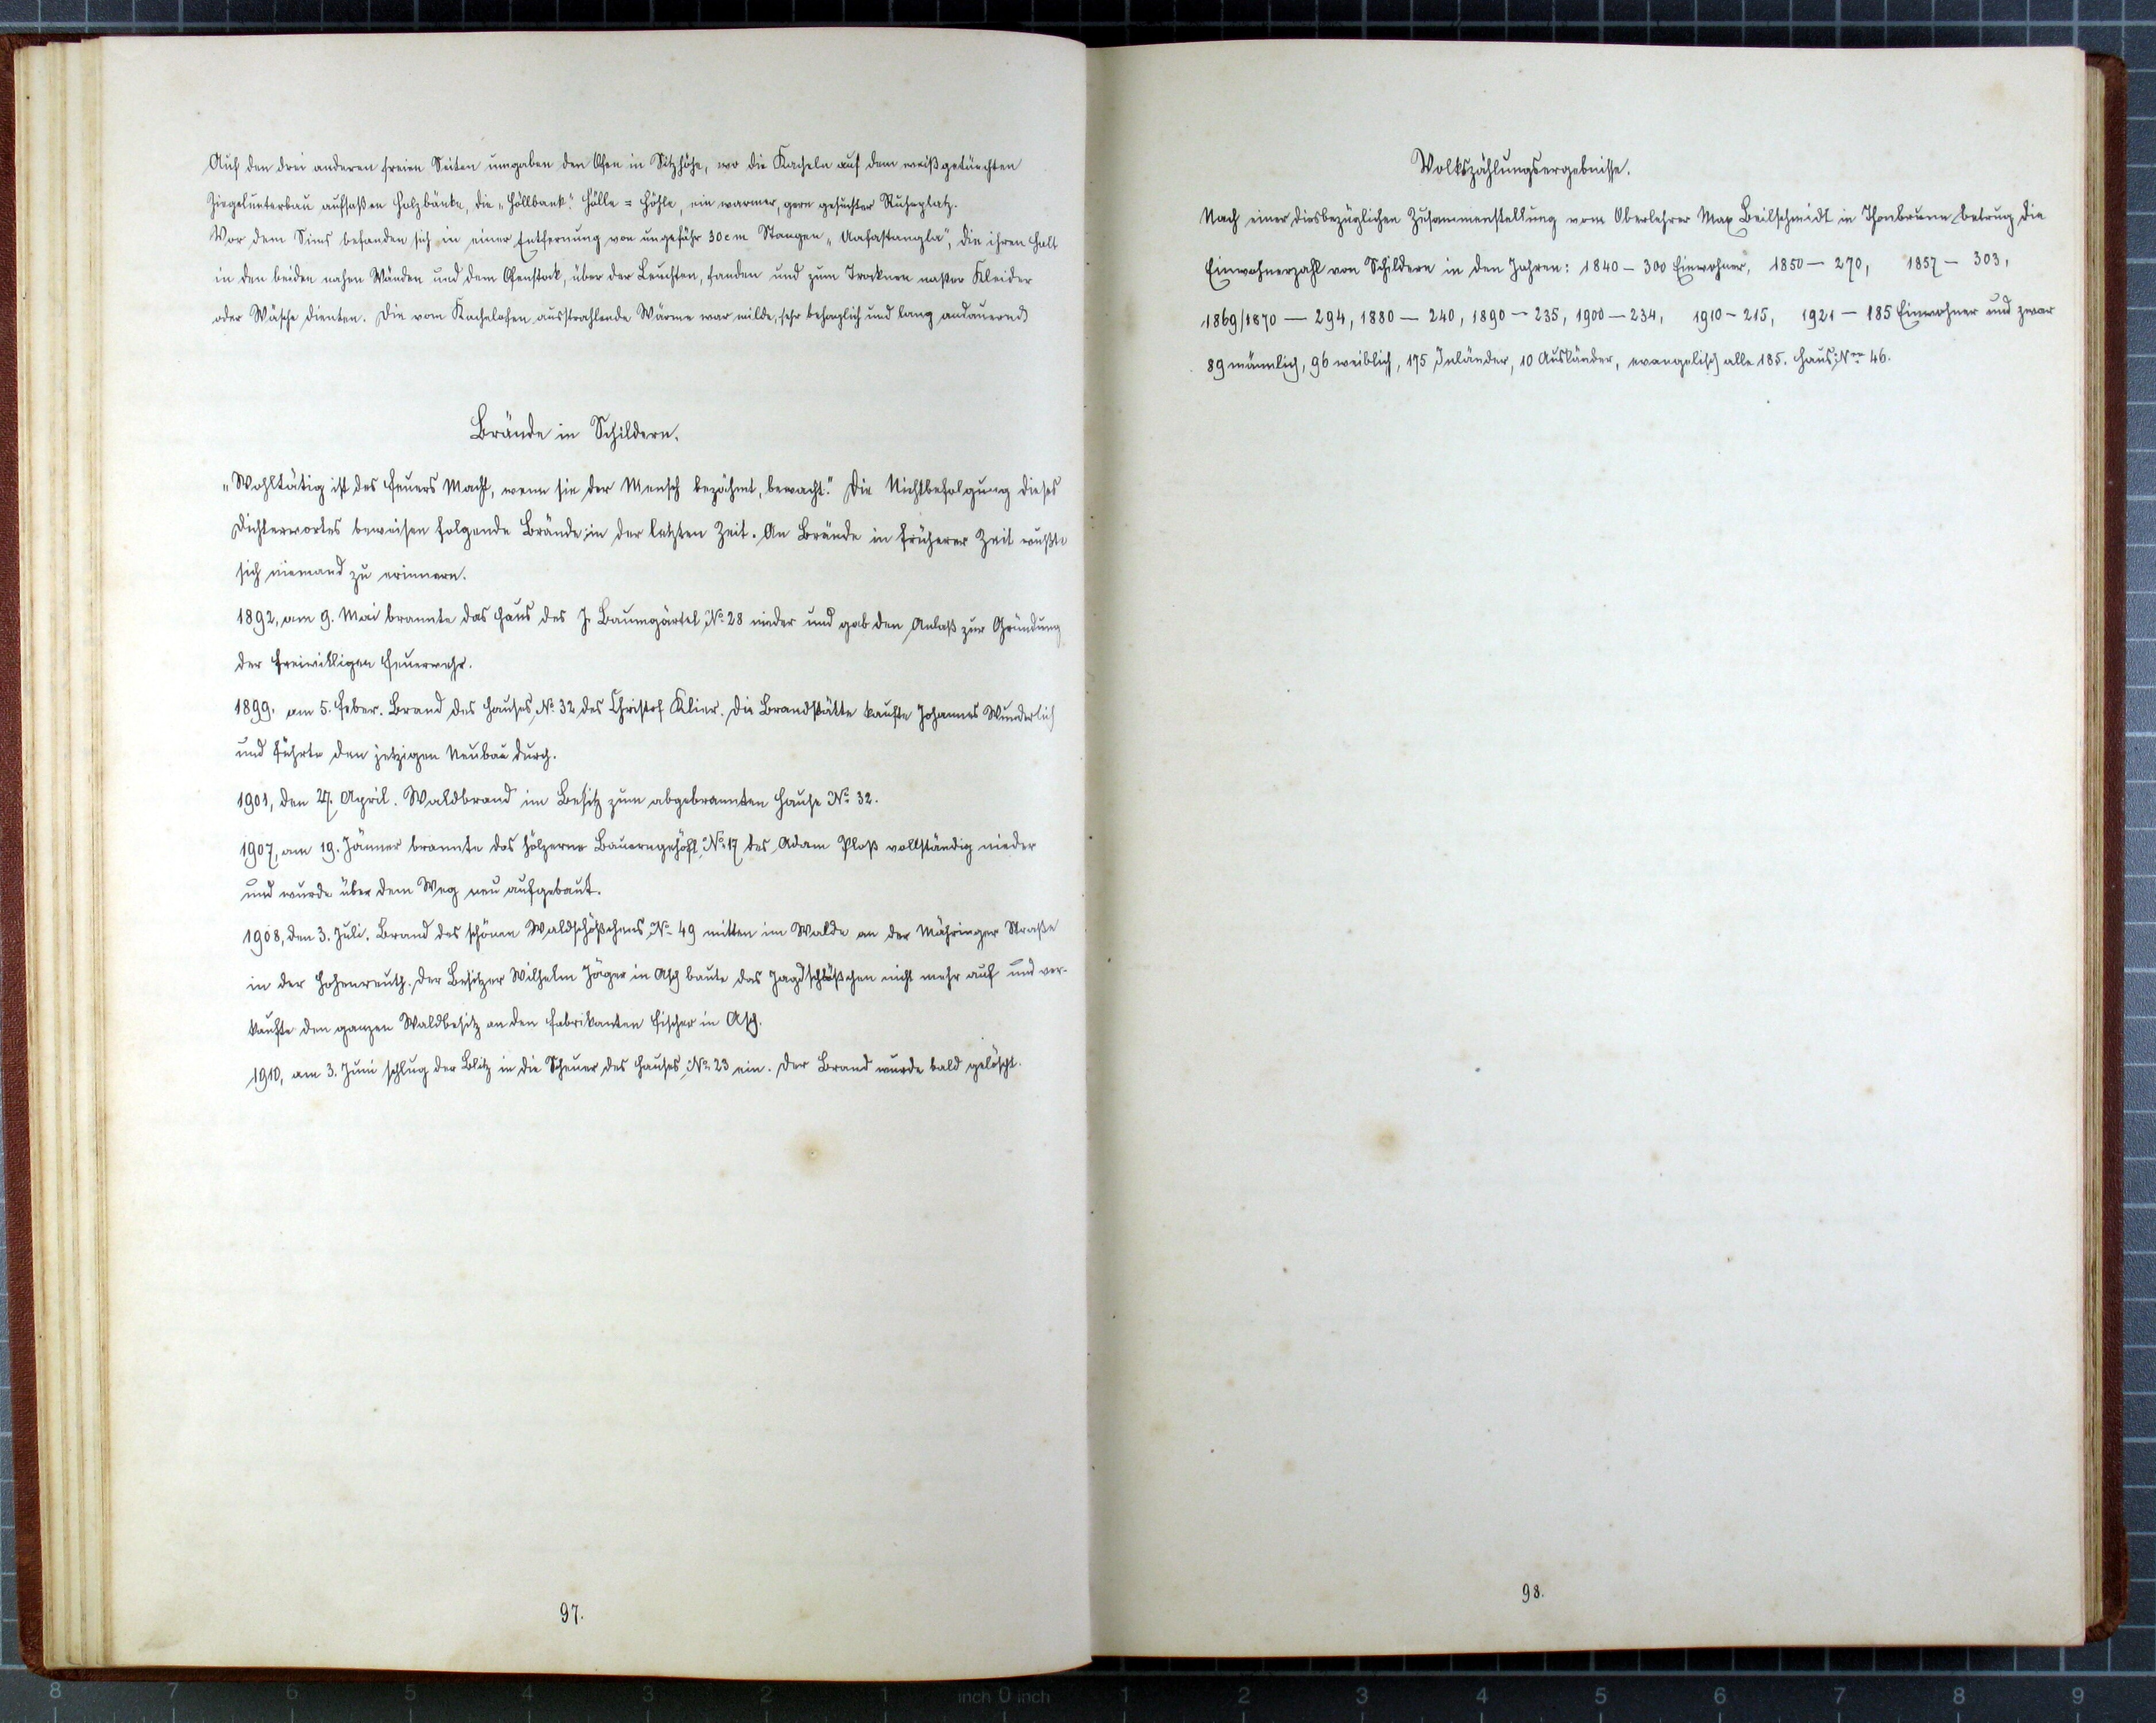 Auf den drei anderen freien Seiten umgaben den Ofen in Sitzhöhe, wo die Kacheln auf dem weißgetünchten
Ziegelunterbau aufsaßen Holzbänke, die „Höllbank". Hölle = Höhle, ein warmer, gern gesuchter Ruheplatz.
Vor dem Sims befanden sich in einer Entfernung von ungefähr 30cm Stangen „Aafastangla", die ihren Halt
in den beiden nahen Wänden und dem Ofenstock, über der Leuchten, fanden und zum Trocknen naßer Kleider
oder Wäsche dienten. Die vom Kachelofen ausstrahlende Wärme war milde, sehr behaglich und lang andauernd
Brände in Schildern.
„Wohltätig ist des Feuers Macht, wenn sie der Mensch bezähmt, bewacht." Die Nichtbefolgung dieses
Dichterwortes beweisen folgende Brände in der letzten Zeit. An Brände in früherer Zeit wußte
sich niemand zu erinnern.
1892, am 9. Mai brannte das Haus des J. Baumgärtel No 28 nieder und gab den Anlaß zur Gründung
der freiwilligen Feuerwehr.
1899. am 5. Feber. Brand des Hauses No 32 des Christof Klier. Die Brandstätte kaufte Johannes Wunderlich
und führte den jetzigen Neubau durch.
1901, den 27. April. Waldbrand im Besitz zum abgebrannten Hause No 32.
1907, am 19. Jänner brannte das hölzerne Bauerngehöft No 17 des Adam Ploß vollständig nieder
und wurde über dem Weg neu aufgebaut.
1908, den 3. Juli. Brand des schönen Waldschößchens No 49 mitten im Walde an der Mähringer Straße
in der Hohenreuth. Der Besitzer Wilhelm Jäger in Asch baute das Jagdschlößchen nicht mehr auf und ver-
kaufte den ganzen Waldbesitz an den Fabrikanten Fischer in Asch.
1910, am 3. Juni schlug der Blitz in die Scheuer des Hauses No 23 ein. Der Brand wurde bald gelöscht.
97.
Volkszählungsergebnisse.
Nach einer diesbezüglichen Zusammenstellung vom Oberlehrer Max Beilschmidt in Thonbrunn betrug die
Einwohnerzahl von Schildern in den Jahren: 1840 – 300 Einwohner, 1850 – 270, 1857 – 303,
1869/1870 – 294, 1880 – 240, 1890 – 235, 1900 – 234, 1910 – 215, 1921 – 185 Einwohner und zwar
89 männlich, 96 weiblich, 175 Inländer, 10 Ausländer, evangelisch alle 185. Haus Nrn 46.
98.
8 7 6 5 4 3 2 1 inch 0 inch 1 2 3 4 5 6 7 8 9